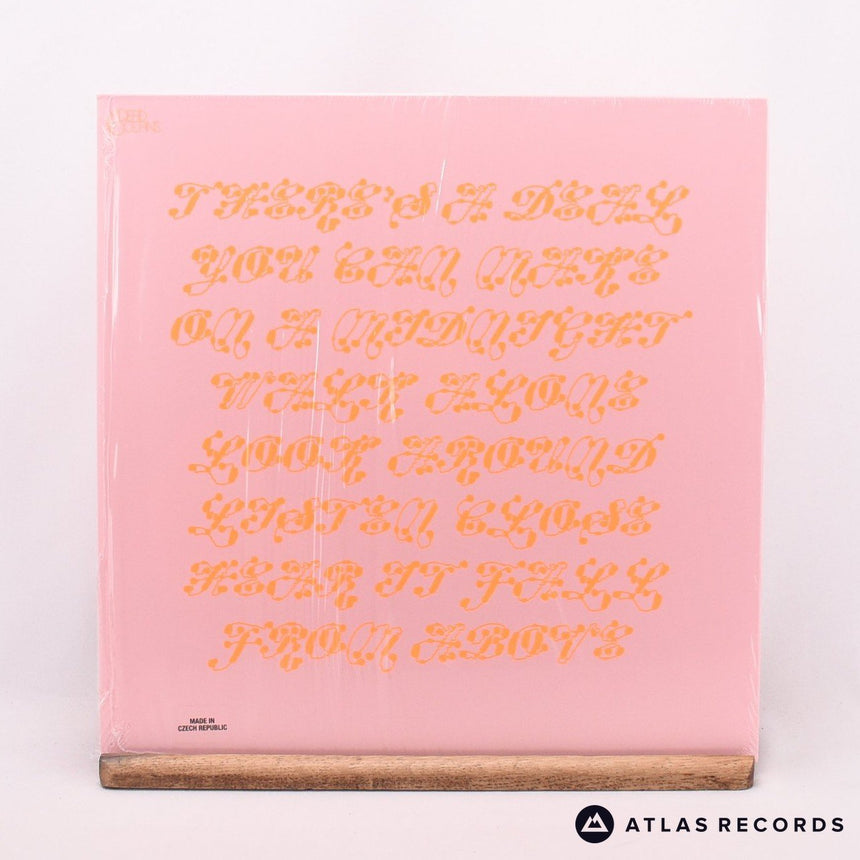 INDEED
MODERNS
THERE'S A DEAL
YOU CAN MAKE
ON A MIDNIGHT
WALK ALONE
LOOK AROUND
LISTEN CLOSE
HEAR IT FALL
FROM ABOVE
MADE IN
CZECH REPUBLIC
ATLAS RECORDS